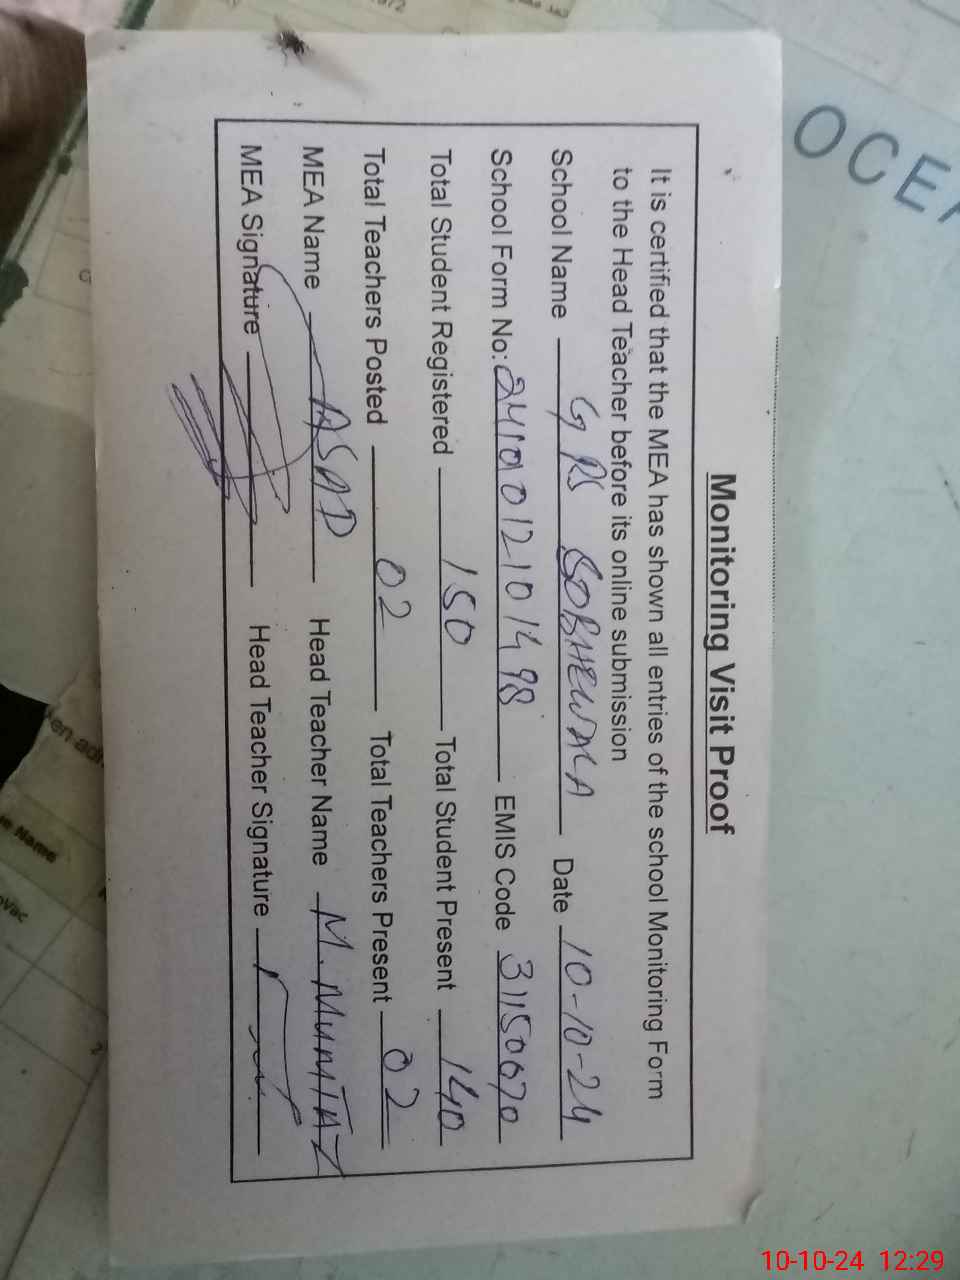 Monitoring Visit Proof
It is certified that the MEA has shown all entries of the school Monitoring Form
to the Head Teacher before its online submission
School Name G PS SOBHEWALA Date 10-10-24
School Form No: 24101012101498 EMIS Code 31150670
Total Student Registered 150 Total Student Present 140
Total Teachers Posted 02 Total Teachers Present 02
MEA Name ASAD Head Teacher Name M. MUMTAZ
MEA Signature Head Teacher Signature
10-10-24 12:29